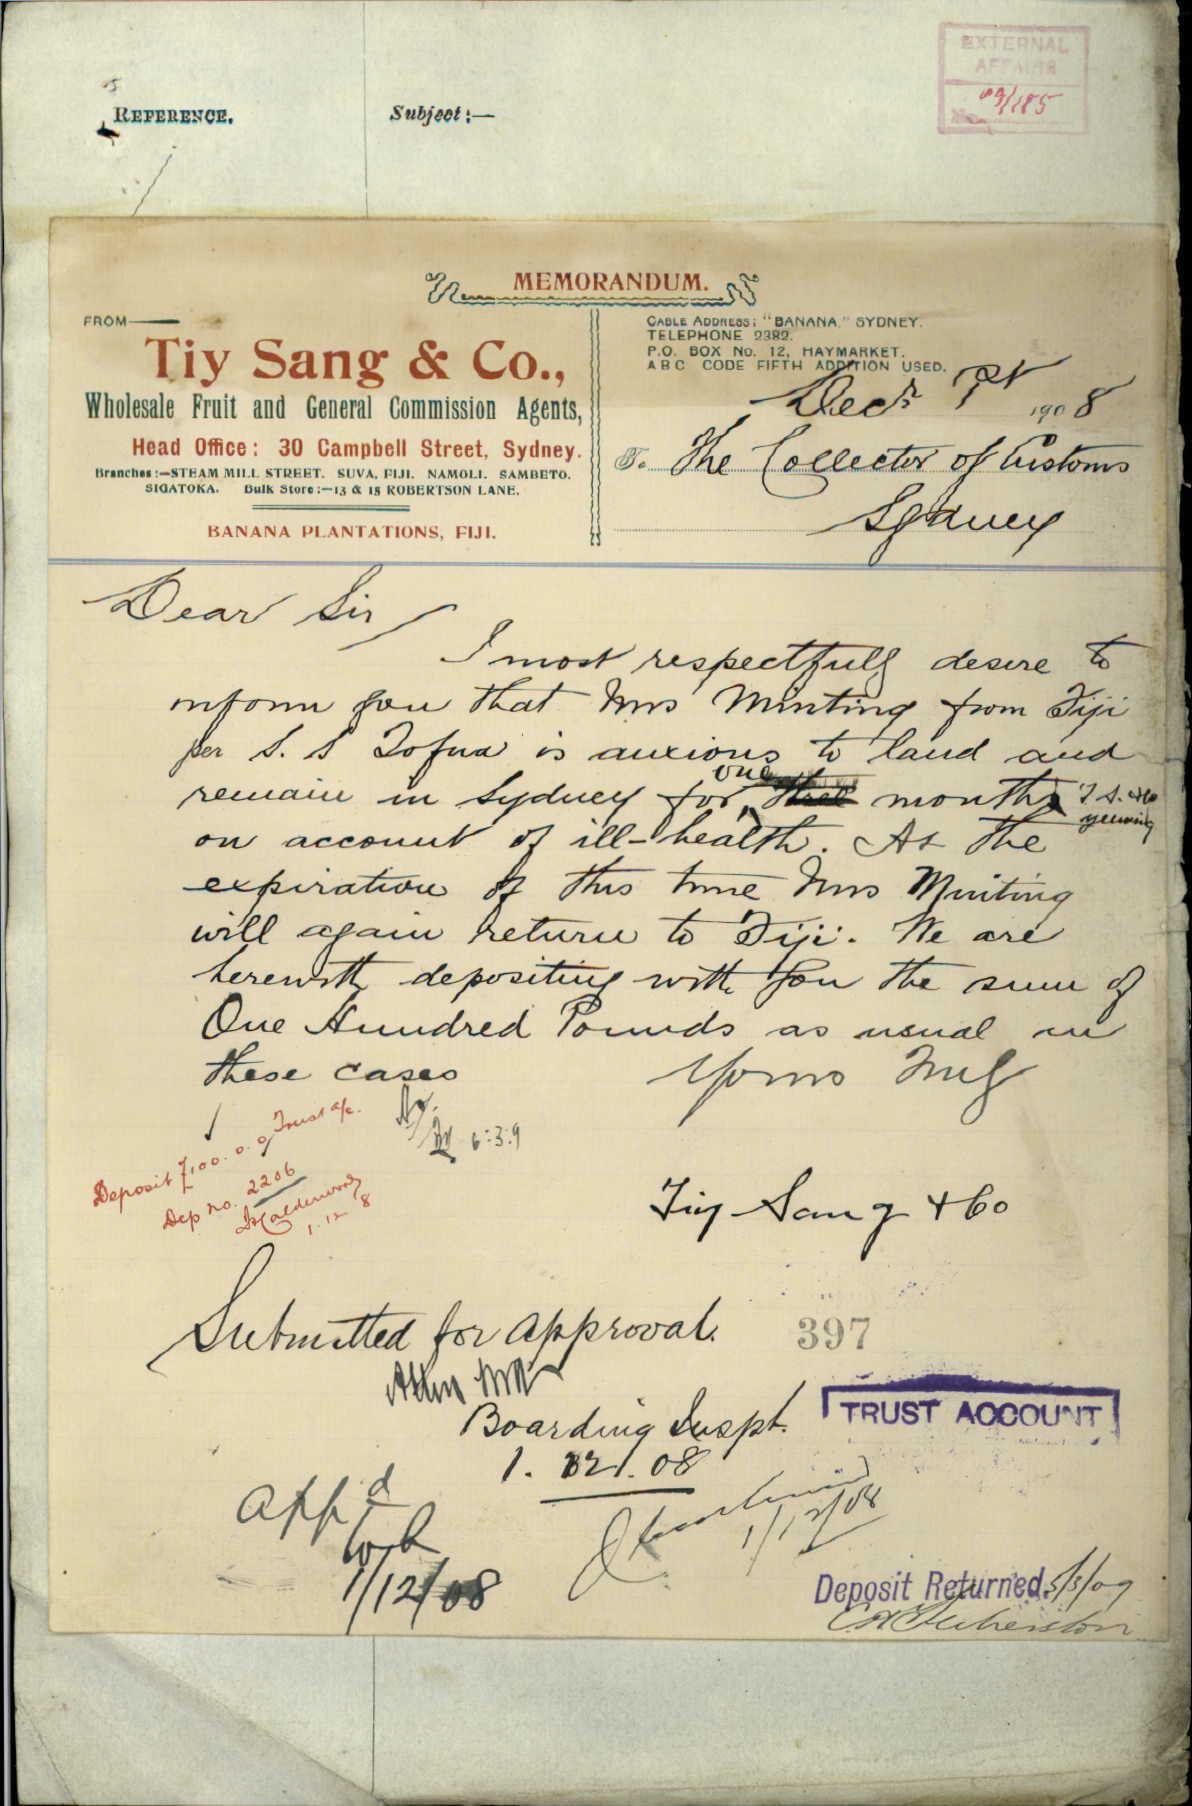 EXTERNAL
AFFAIRS
No. 09/185
REFERENCE.
Subject:—
MEMORANDUM.
FROM
Tiy Sang & Co.,
Wholesale Fruit and General Commission Agents,
Head Office: 30 Campbell Street, Sydney.
Branches:—STEAM MILL STREET. SUVA, FIJI. NAMOLI. SAMBETO.
SIGATOKA. Bulk Store:—13 & 15 ROBERTSON LANE.
BANANA PLANTATIONS, FIJI.
CABLE ADDRESS: "BANANA," SYDNEY.
TELEPHONE 2382.
P.O. BOX No. 12, HAYMARKET.
A B C CODE FIFTH ADDITION USED.
Decr 1st 1908
To The Collector of Customs
Sydney
Dear Sir
I most respectfully desire to
inform you that Mrs Minting from Fiji
per S. S Tofua is anxious to land and
one
remain in Sydney for three months T S. & Co
on account of ill-health. At the
expiration of this time Mrs Minting
will again return to Fiji. We are
herewith depositing with you the sum of
One Hundred Pounds as usual in
these cases
Yours Truly
6:3:9
Deposit £100.0.0 Trust a/c.
Dep no. 2206
1.12.8
Tiy Sang & Co
Submitted for approval.
397
Boarding Inspt.
1.12.08
TRUST ACCOUNT
appd
1/12/08
1/12/08
Deposit Returned. 5/3/09